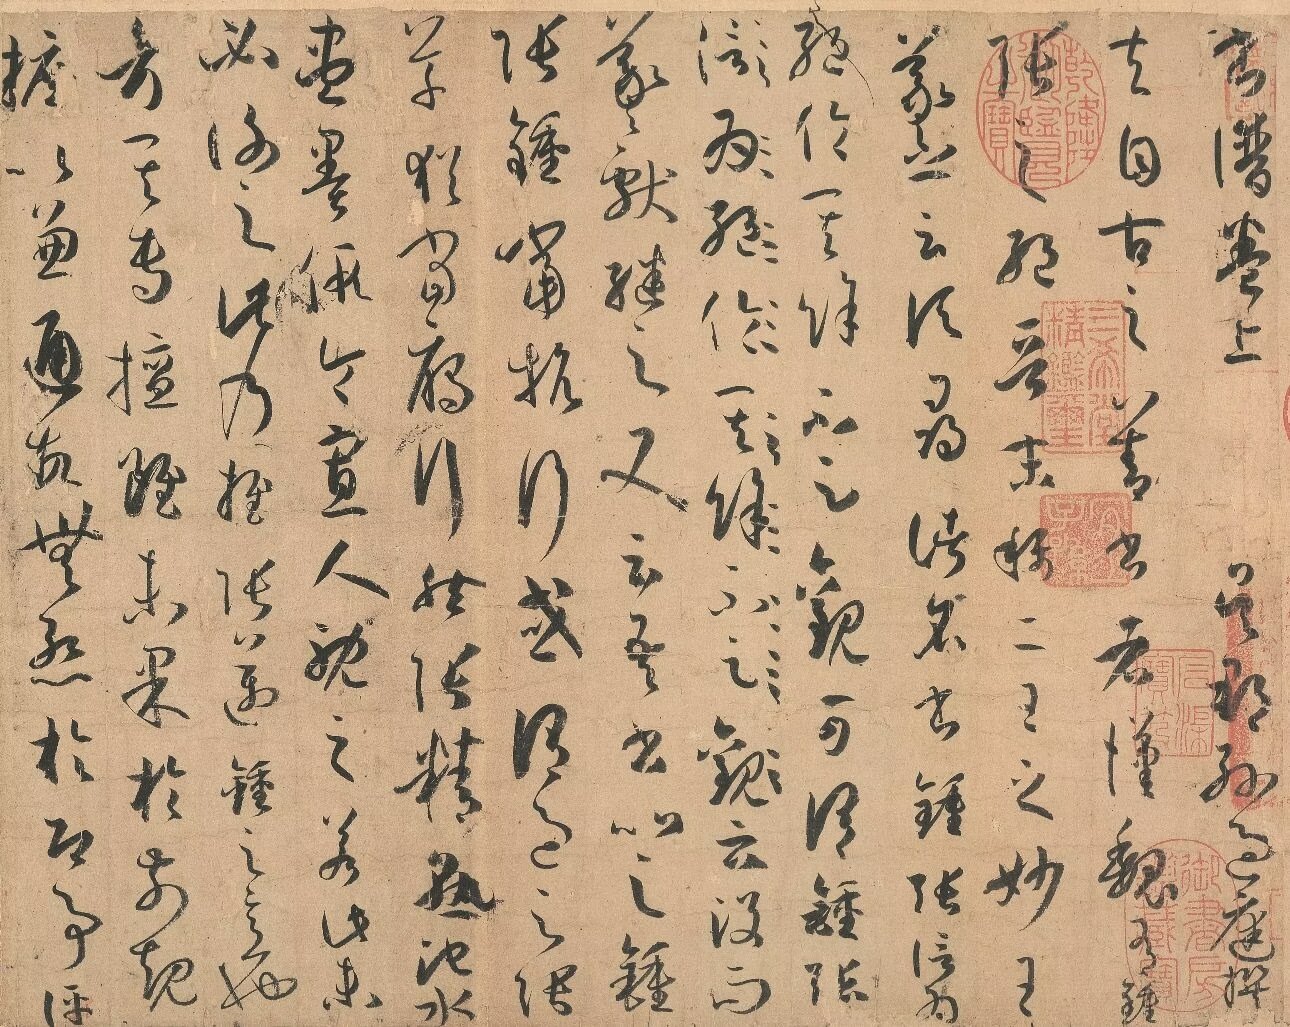 書譜卷上 吳郡孫過庭撰
夫自古之善書者漢魏有鍾
張之絕晉末稱二王之妙王
羲之云頃尋諸名書鍾張信為
絕倫其餘不足觀可謂鍾張
信為絕倫其餘不足觀云沒而
羲獻繼之又云吾書比之鍾
張鍾當抗行或謂過之張
草猶當雁行然張精熟池水
盡墨假令寡人耽之若此未
必謝之此乃推張邁鍾之意也
考其專擅雖未果於前規
摭以兼通故無慚於即事評
乾隆御覽之寶
三希堂精鑑璽
宜子孫
御書房鑑藏寶